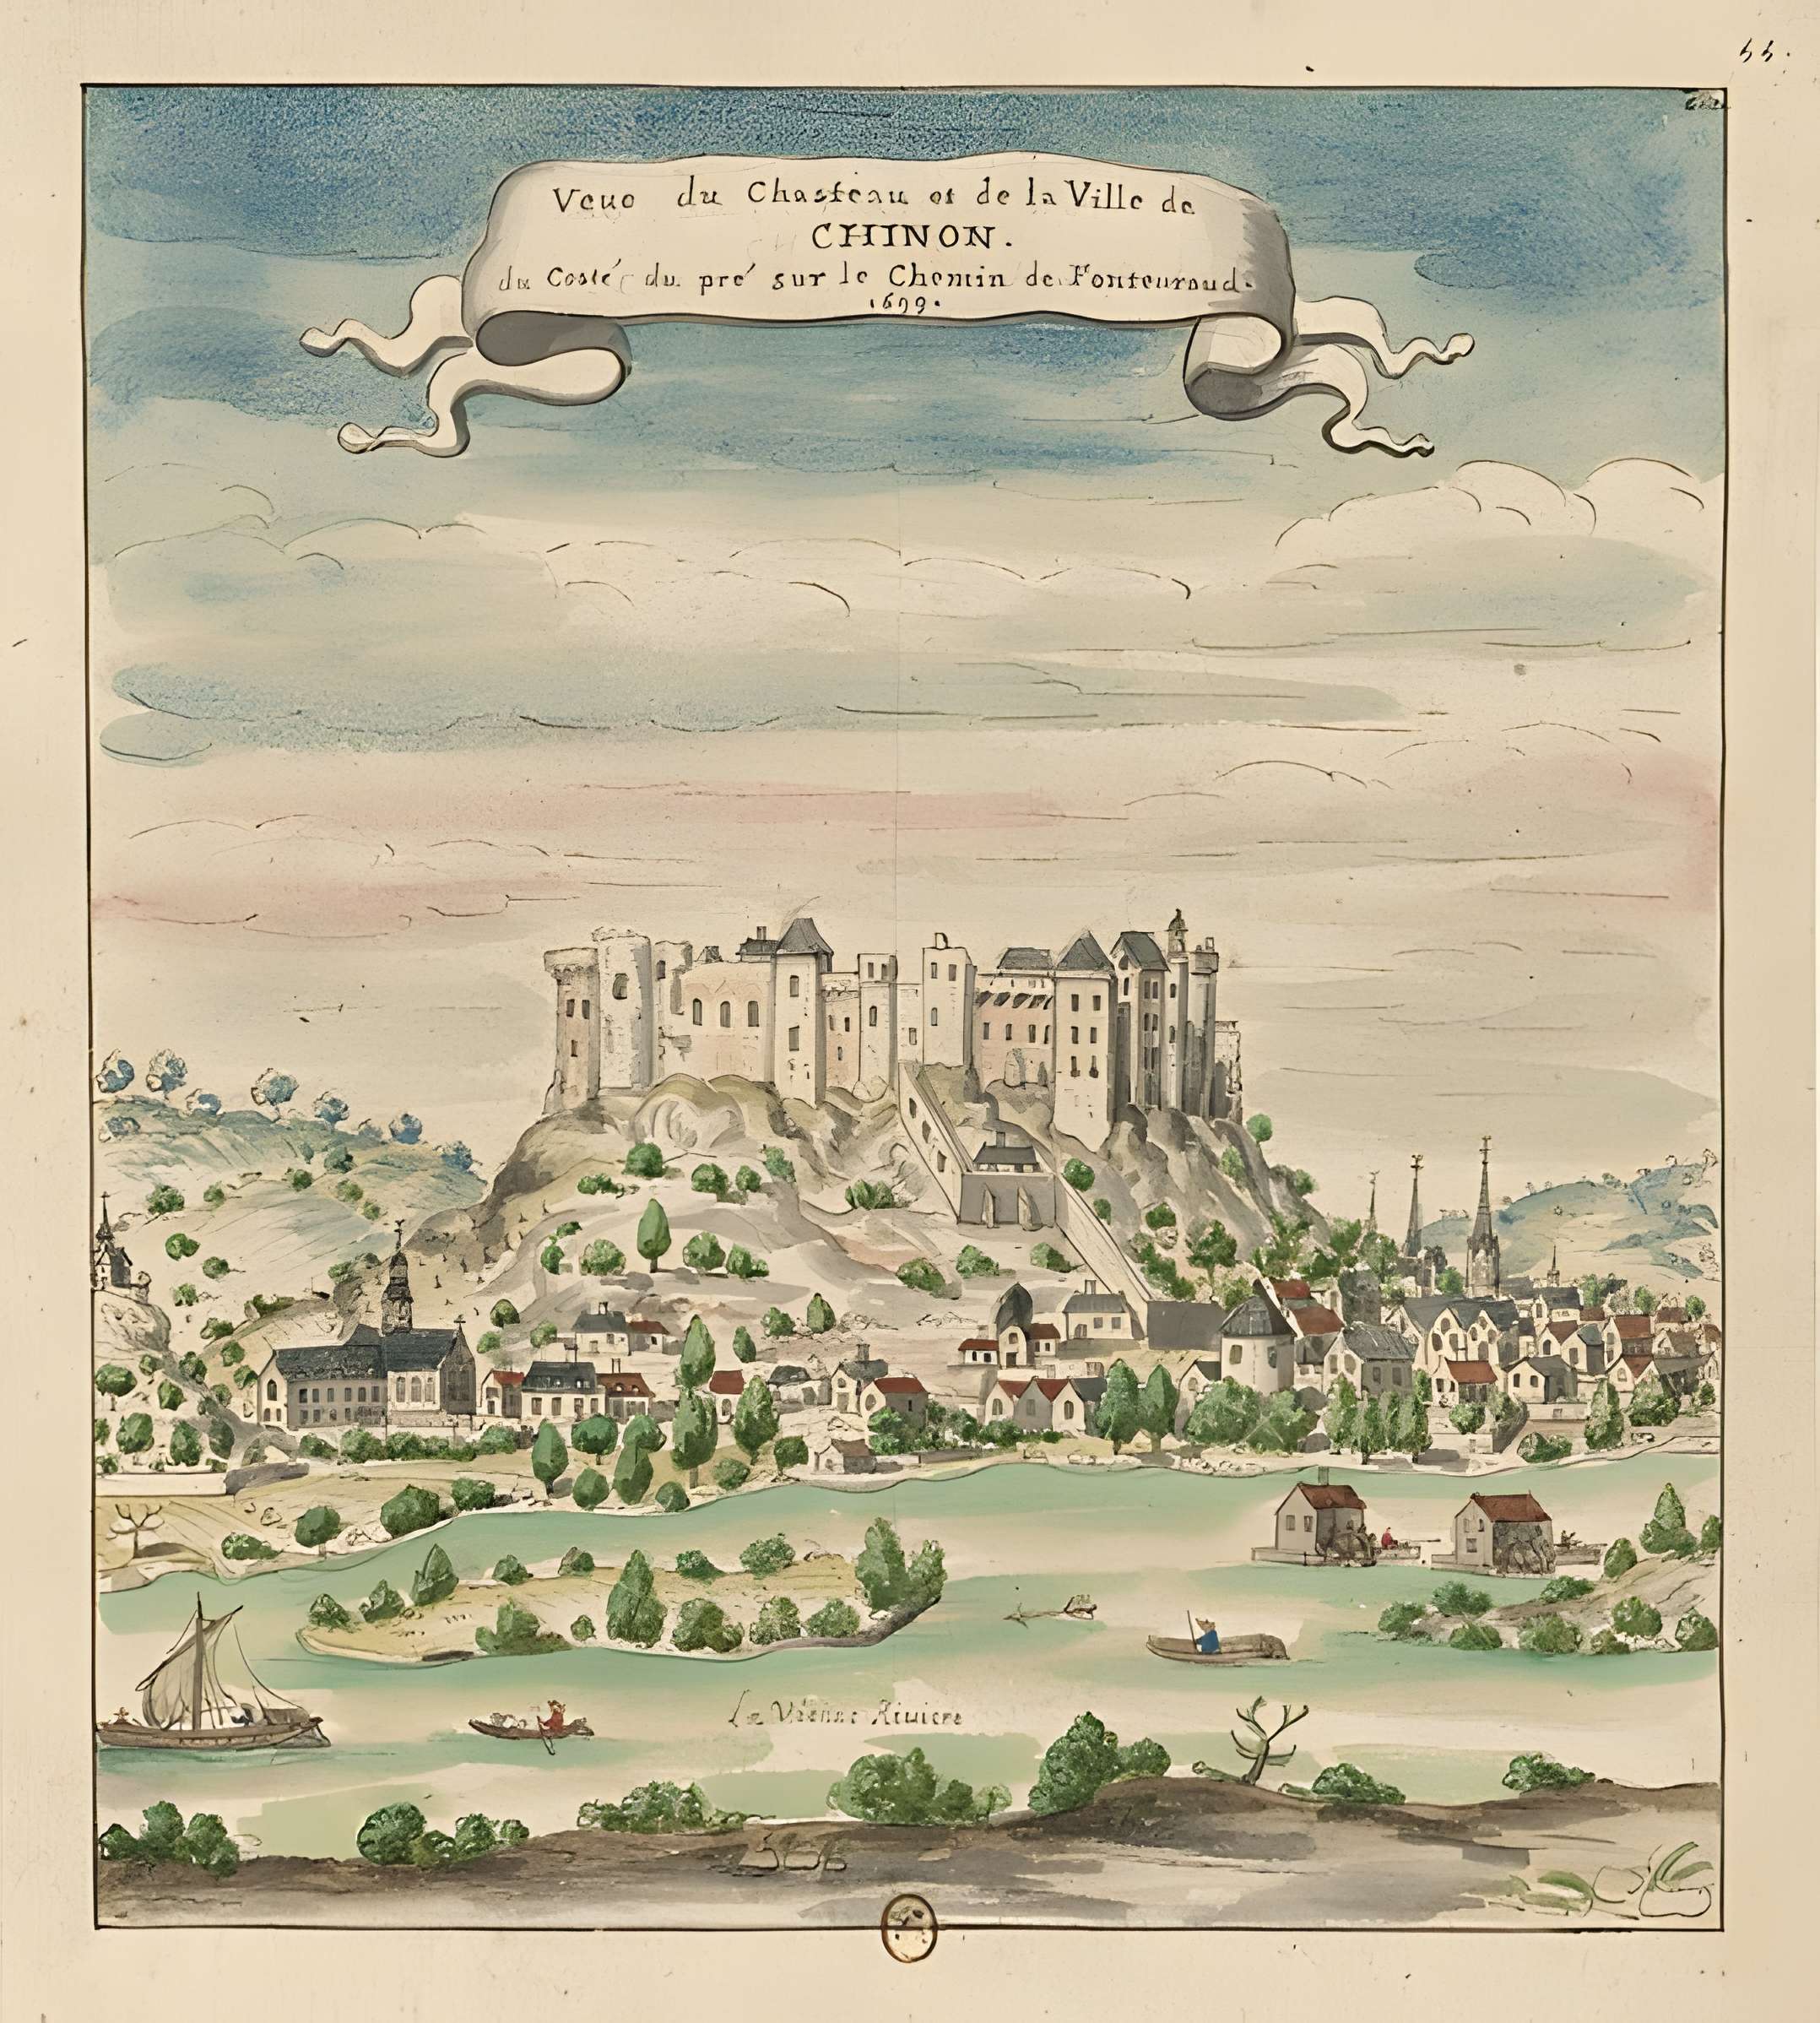 55.
Veue du Chasteau et de la Ville de
CHINON.
du Costé du pré sur le Chemin de Fonteuraud.
1699.
La Vienne Riuiere